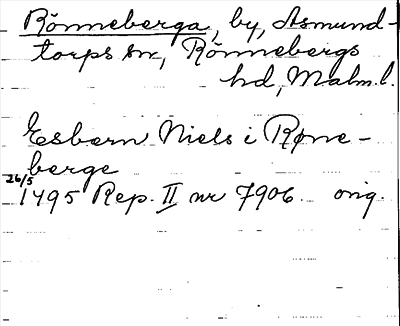 Rönneberga, by, Asmund-
torps sn, Rönnebergs
hd, Malm.l.
Esbern Niels i Røne-
berge
26/5
1495 Rep. II nr 7906. orig.